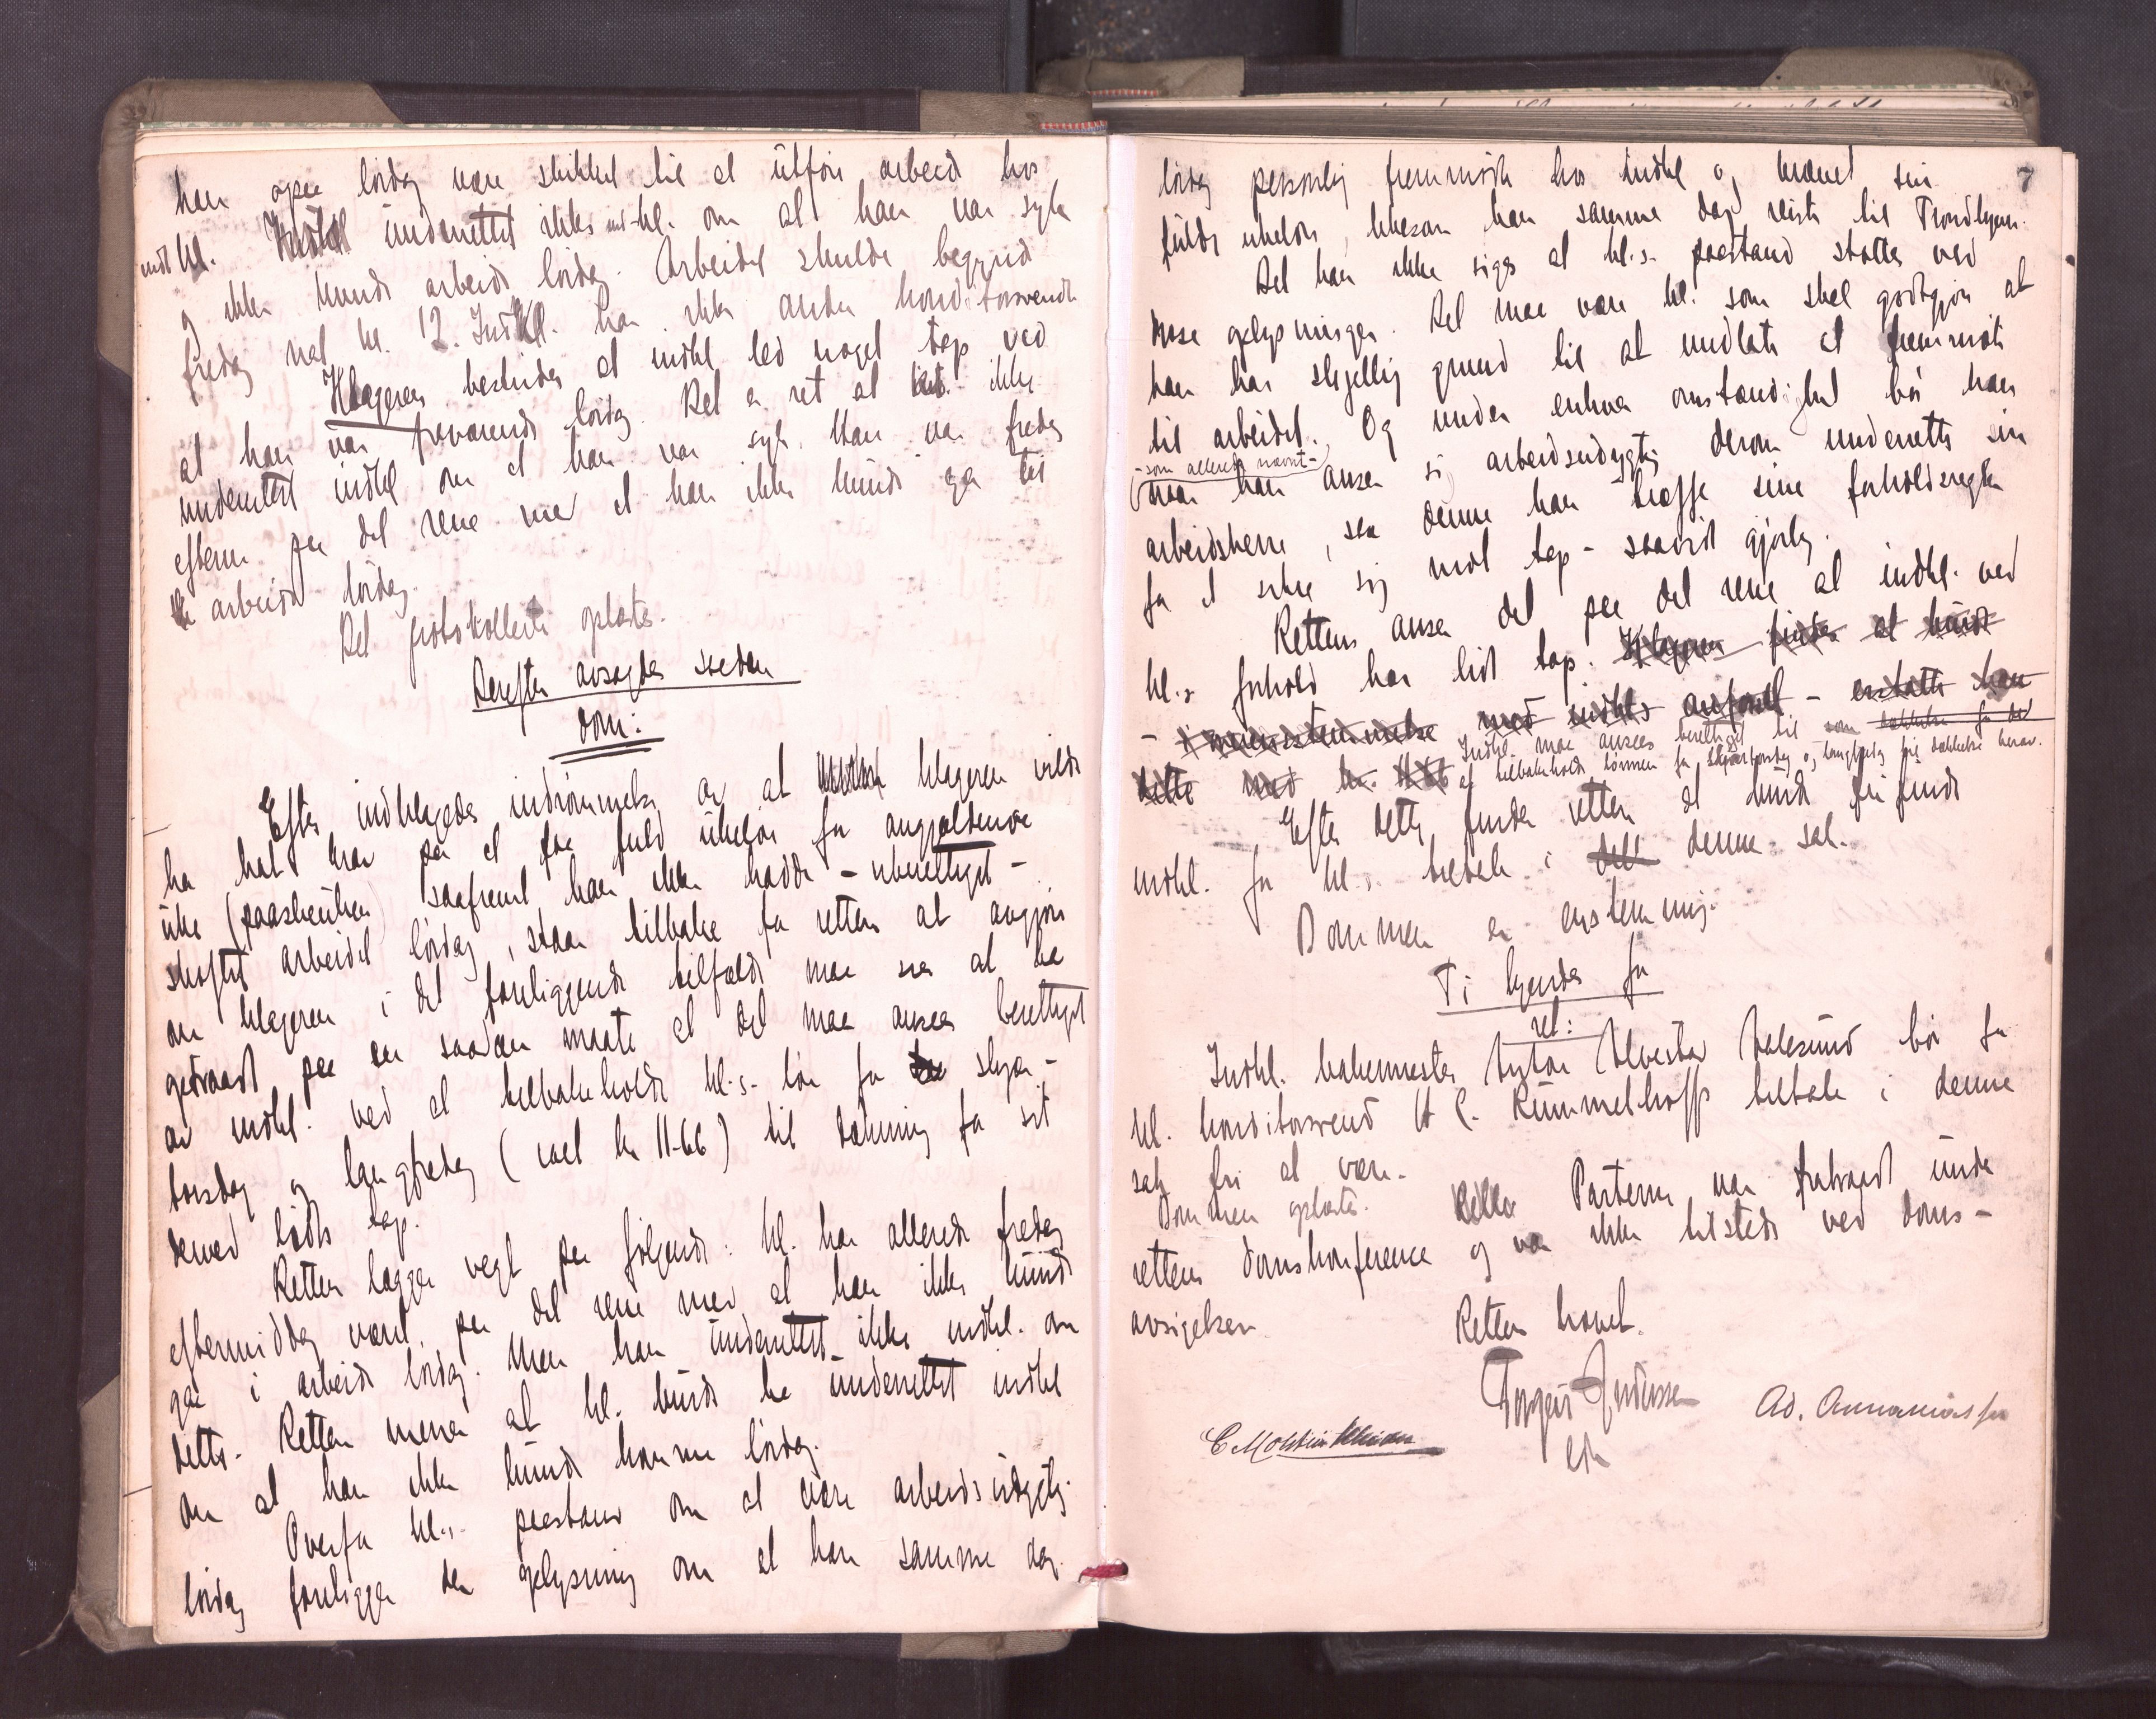 han ogsaa lørdag være skikket til at utføre arbeid hos
indkl. underrettet ikke indkl. om at han var syk
og ikke kunde arbeide lørdag. Arbeidet skulde begynde
fredag nat kl. 12. Indkl. har ikke anden konditorsvend.
Klageren bestrider at indkl led noget tap ved
at han var fraværende lørdag. Det er ret at ikke
underrettet indkl om at han var syk. Han var fredag
efterm paa det rene med at han ikke kunde gaa til
arbeidet lørdag.
Det protokollerte oplæstes.
Derefter avsagdes saadan
dom:
Efter indklagedes indrømmelse av at klageren vilde
ha hat krav paa at faa fuld ukeløn for angjældende
uke (paaskeuken) saafremt han ikke hadde - uberettiget -
skoftet arbeidet lørdag, staar tilbake for retten at avgjøre
om klageren i det foreliggende tilfælde maa sies at ha
gaat paa en saadan maate at det maa ansees berettiget
av indkl. ved at tilbakeholde kl.s. løn for skjær-
torsdag og langfredag (ialt kr 11.66) til dækning for sit
derved lidte tap.
Retten lægger vegt paa følgende: Kl. har allerede fredag
eftermiddag været paa det rene med at han ikke kunde
gaa i arbeide lørdag. Men han underrettet ikke indkl. om
dette. Retten mener at kl. burde ha underrettet indkl
om at han ikke kunde komme lørdag.
Overfor kl.s. paastand om at være arbeidsudygtig
lørdag foreligger den oplysning om at han samme dag
7
lørdag personlig fremmøtte hos indkl og krævet sin
fulde ukeløn, likesom han samme dag reiste til Trondhjem.
Det kan ikke siges at kl.s. paastand støttes ved
disse oplysninger. Det maa være kl. som skal godtgjøre at
han har skjellig grund til at undlate at fremmøte
til arbeidet. Og under enhver omstændighet bør han
- som allerede nævnt -
naar han anser sig arbeidsudygtig derom underrette sin
arbeidsherre, saa denne kan træffe sine forholdsregler
for at sikre sig mot tap - saavidt gjørlig.
Retten anser det paa det rene at indkl. ved
kl.s forhold har lidt tap. Klageren findes at burde
- i overensstemmelse med indkl.s anførsel - erstatte ham
dette med kr. 11.66 Indkl. maa ansees berettiget til som dækkelse for det
at tilbakeholde lønnen for skjærtorsdag og langfredag til dækkelse herav.
Efter dette finder retten at burde frifinde
indkl. for kl.s. tiltale i det denne sak.
Dommen er enstemmig.
Ti kjendes for
ret:
Indkl. bakermester Alvestad Aalesund bør for
kl. konditorsvend H C. Rümmelhoff tiltale i denne
sak fri at være.
Dommen oplæstes. Parterne var fratraadt under
rettens domskonference og var ikke tilstede ved doms-
avsigelsen.
Retten hævet.